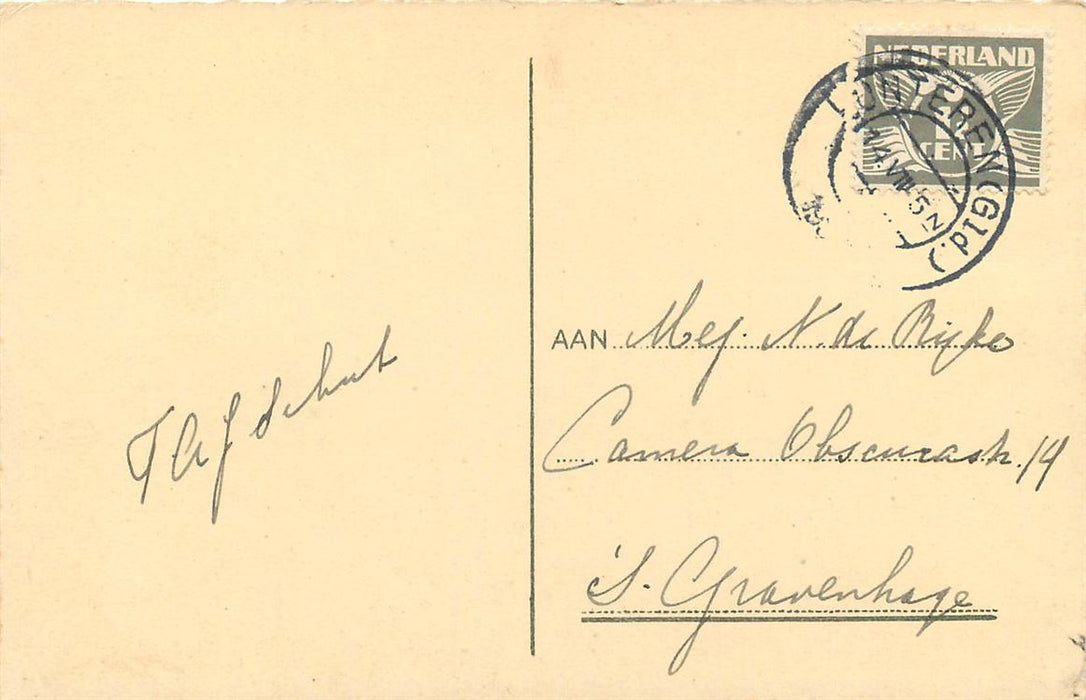 NEDERLAND
CENT
LUNTEREN (Gld.)
14.VII
AAN Mej. N. de Rijke
Camera Obscurastr. 14
's. Gravenhage